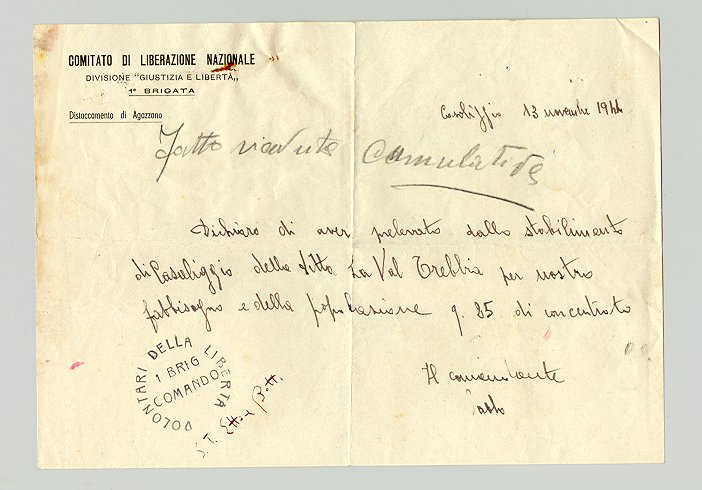 COMITATO DI LIBERAZIONE NAZIONALE
DIVISIONE "GIUSTIZIA E LIBERTÀ„
1ª BRIGATA
Distaccamento di Agazzano
Casaliggio 13 novembre 1944
Fatto ricevuta cumulativa
Dichiaro di aver prelevato dallo stabilimento
di Casaliggio della ditta La Val Trebbia per nostro
fabbisogno e della popolazione q. 85 di concentrato
VOLONTARI DELLA LIBERTA
1 BRIG
COMANDO
Il comandante
Paolo
S.T. Ettore Bott.